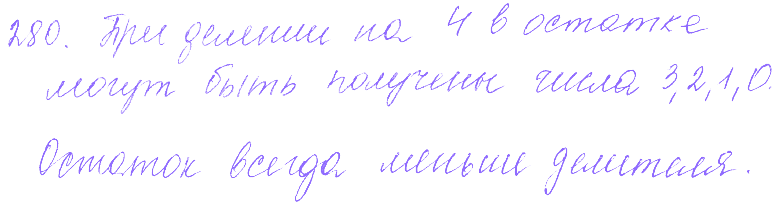 280. При делении на 4 в остатке
могут быть получены числа 3, 2, 1, 0.
Остаток всегда меньше делителя.